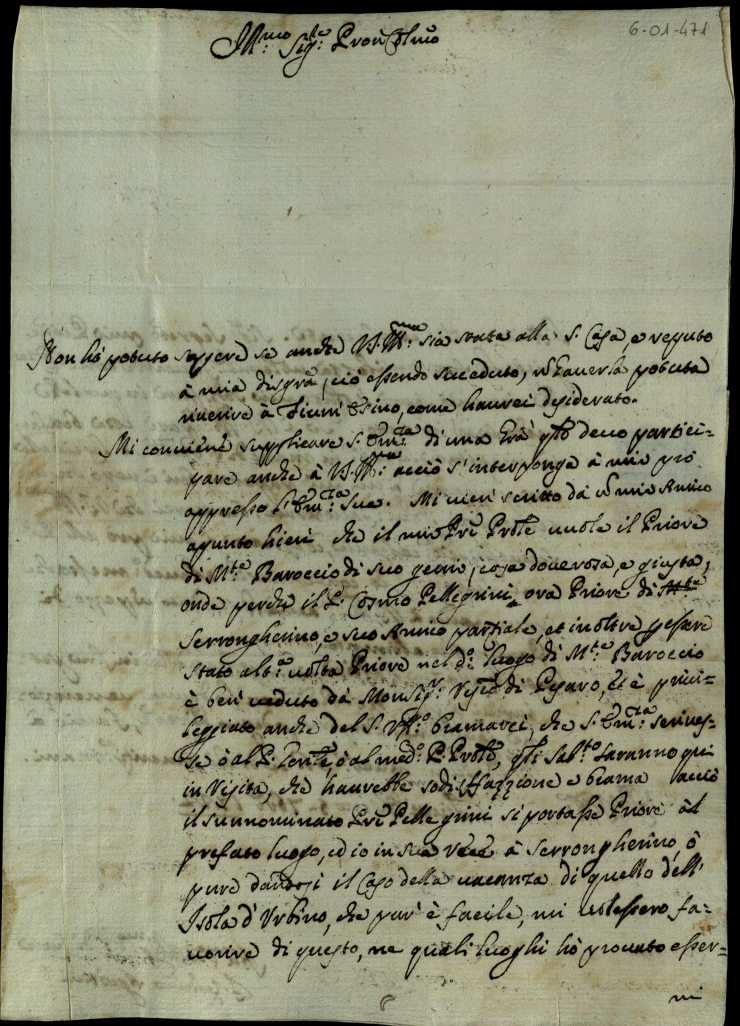 6-01-471
Ill.mo Sig.re Pron Col.mo
Non hò potuto sapere se anche V.S. Ill.ma sia stata alla S. Casa, e reputo
à mia disgrã, ciò essendo succeduto, haverla potuta
riverire à come haurei desiderato.
Mi conviene supplicare S. Em.za di una grã qto devo partici-
pare anche à V.S. Ill.ma acciò s'interponga à mio prò
appresso l'Em.za Sua. Mi vien scritto da un mio Amico
apunto hieri che il mio Prẽ Prõle vuole il Priore
di M.te Baroccio di suo genio, cosa doverosa, e giusta,
onde perche il P. Cosmo Pellegrini ora Priore di
Serrongherino, e suo Amico partiale, et inoltre p essere
stato alt.a volta Priore nel d.o luogo di M.te Baroccio
è ben veduto da Monsig.r Vesc.o di Pesaro, et è privi-
leggiato anche del S. che S. Em.za scrives-
se ò al P. ò al med.o P. Prõle, gli Sab.to saranno qui
in Visita, che haurebbe sodisfazzione e brama acciò
il sunnominato Prẽ Pellegrini si portasse Priore al
prefato luogo, ed io in sua vece à Serrongherino, ò
pure dandosi il Caso della vacanza di quello dell'
Isola d'Urbino, che pur' è facile, mi volessero fa-
vorire di questo, ne quali luoghi hò provato esser-
mi